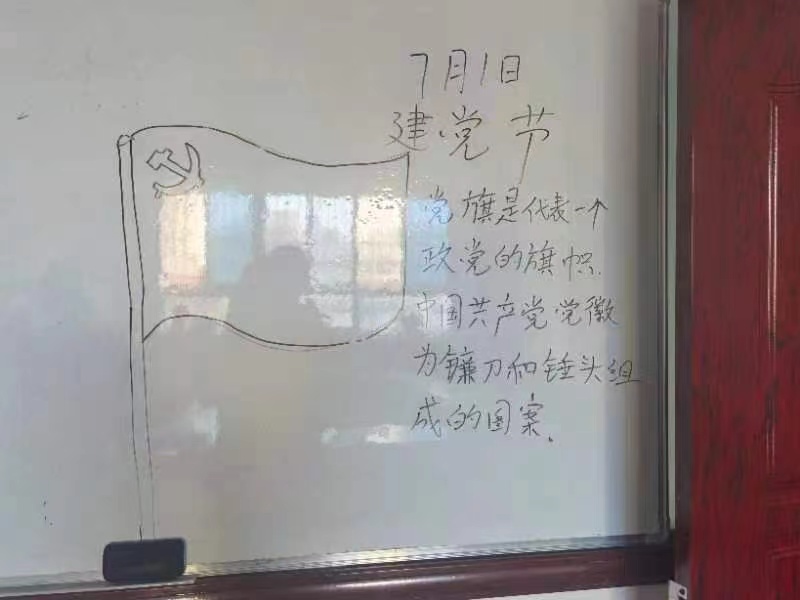 7月1日
建党节
党旗是代表一个
政党的旗帜.
中国共产党党徽
为镰刀和锤头组
成的图案.